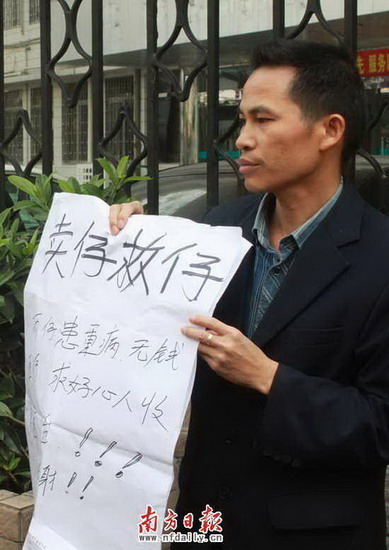 先 服务
卖仔救仔
仔患重病 无钱
求好心人收
!!!
谢!!
南方日报
www.nfdaily.cn